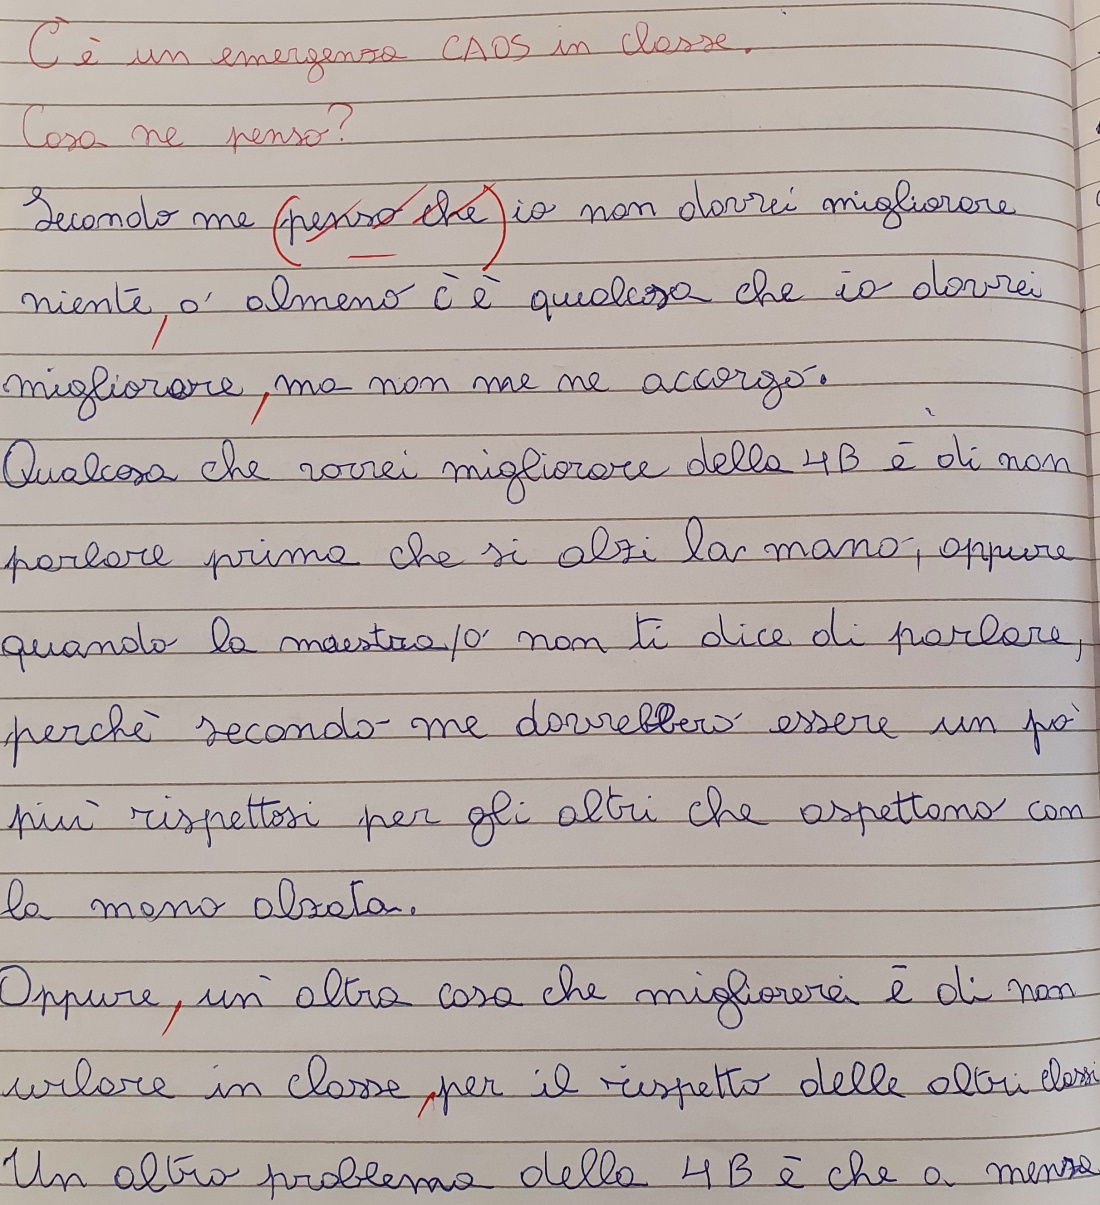 C'è un emergenza CAOS in classe.
Cosa ne penso?
Secondo me (penso che) io non dovrei migliorare
niente, o almeno c'è qualcosa che io dovrei
migliorare, ma non me ne accorgo.
Qualcosa che vorrei migliorare della 4B è di non
parlare prima che si alzi la mano, oppure
quando la maestra/o non ti dice di parlare,
perchè secondo me dovrebbero essere un pò
più rispettosi per gli altri che aspettano con
la mano alzata.
Oppure, un altra cosa che migliorerei è di non
urlare in classe, per il rispetto delle altri classi
Un altro problema della 4B è che a mensa